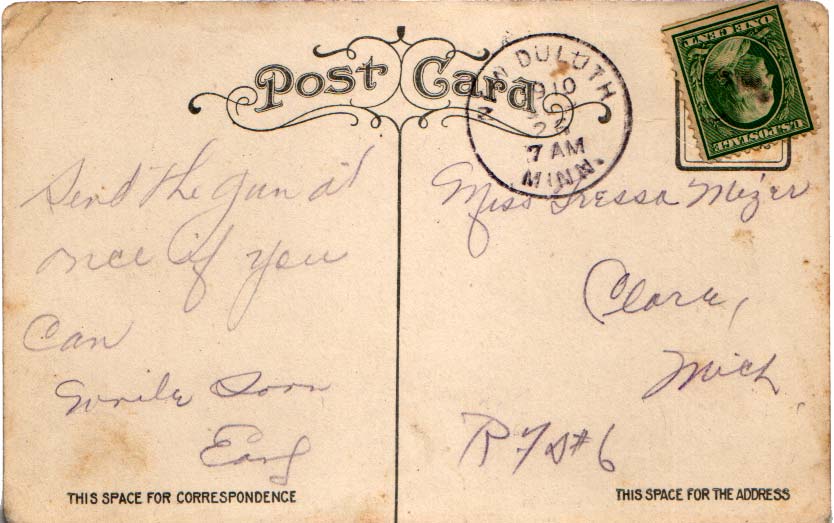 Post Card
NEW DULUTH
1910
25
7 AM
MINN.
ONE CENT
U.S. POSTAGE
Send the gun at
once if you
Can
Soon
Earl
Miss Tressa
Clare,
Mich
R F D #6
THIS SPACE FOR CORRESPONDENCE
THIS SPACE FOR THE ADDRESS